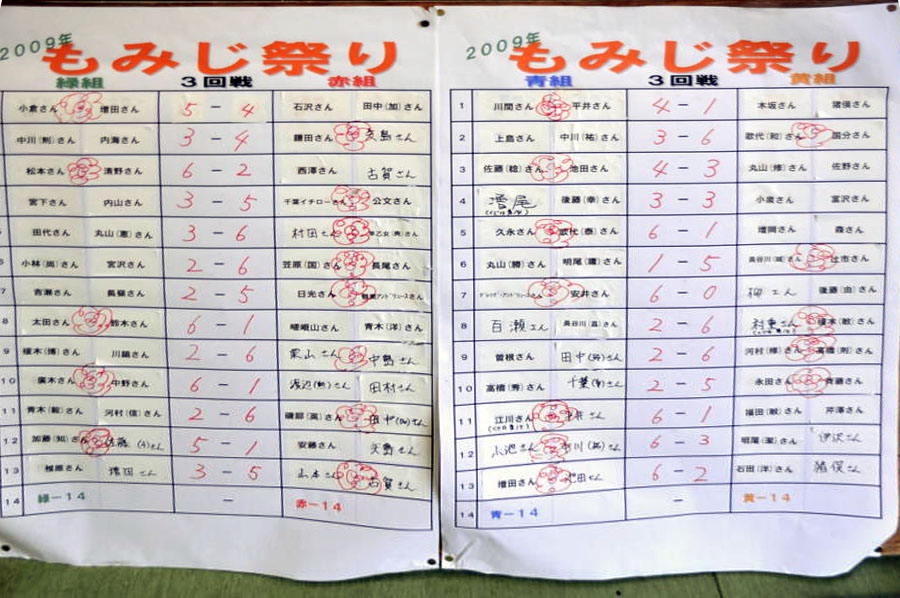 2009年
もみじ祭り
緑組 3回戦 赤組
小倉さん 増田さん 5 - 4 石沢さん 田中(加)さん
中川(則)さん 内海さん 3 - 4 鎌田さん さん
松本さん 清野さん 6 - 2 西澤さん 古賀さん
宮下さん 内山さん 3 - 5 千葉イチローさん 公文さん
5 田代さん 丸山(恵)さん 3 - 6 村田さん さん
6 小林(尚)さん 宮沢さん 2 - 6 笠原(国)さん 長尾さん
7 吉瀬さん 長嶺さん 2 - 5 日光さん
8 太田さん 鈴木さん 6 - 1 嵯峨山さん 青木(洋)さん
9 植木(博)さん 川鍋さん 2 - 6 栗山さん 中島さん
10 廣木さん 中野さん 6 - 1 渡辺(勲)さん 田村さん
11 青木(毅)さん 河村(信)さん 2 - 6 磯部(英)さん 田中さん
12 加藤(知)さん 佐藤(A)さん 5 - 1 安藤さん 矢野さん
13 椎原さん 増田さん 3 - 5 山本さん 古賀さん
14 緑-14 - 赤-14
2009年
もみじ祭り
青組 3回戦 黄組
1 川間さん 平井さん 4 - 1 木坂さん 猪俣さん
2 上島さん 中川(祐)さん 3 - 6 歌代(和)さん 国分さん
3 佐藤(稔)さん 池田さん 4 - 3 丸山(修)さん 佐野さん
4 増尾 後藤(幸)さん 3 - 3 小泉さん 富沢さん
5 久永さん 歌代(泰)さん 6 - 1 増岡さん 森さん
6 丸山(勝)さん 明尾(鷹)さん 1 - 5 長谷川(誠)さん 辻市さん
7 安井さん 6 - 0 柳さん 後藤(由)さん
8 百瀬さん 長谷川(直)さん 2 - 6 村東さん 植木(敏)さん
9 曽根さん 田中さん 2 - 6 河村(樺)さん 高橋(則)さん
10 高橋(秀)さん 千葉さん 2 - 5 永田さん 斉藤さん
11 江川さん 平井さん 6 - 1 福田(敏)さん 芹澤さん
12 小池さん さん 6 - 3 明尾(潔)さん 伊沢さん
13 増田さん 池田さん 6 - 2 石田(洋)さん 猪俣さん
14 青-14 - 黄-14